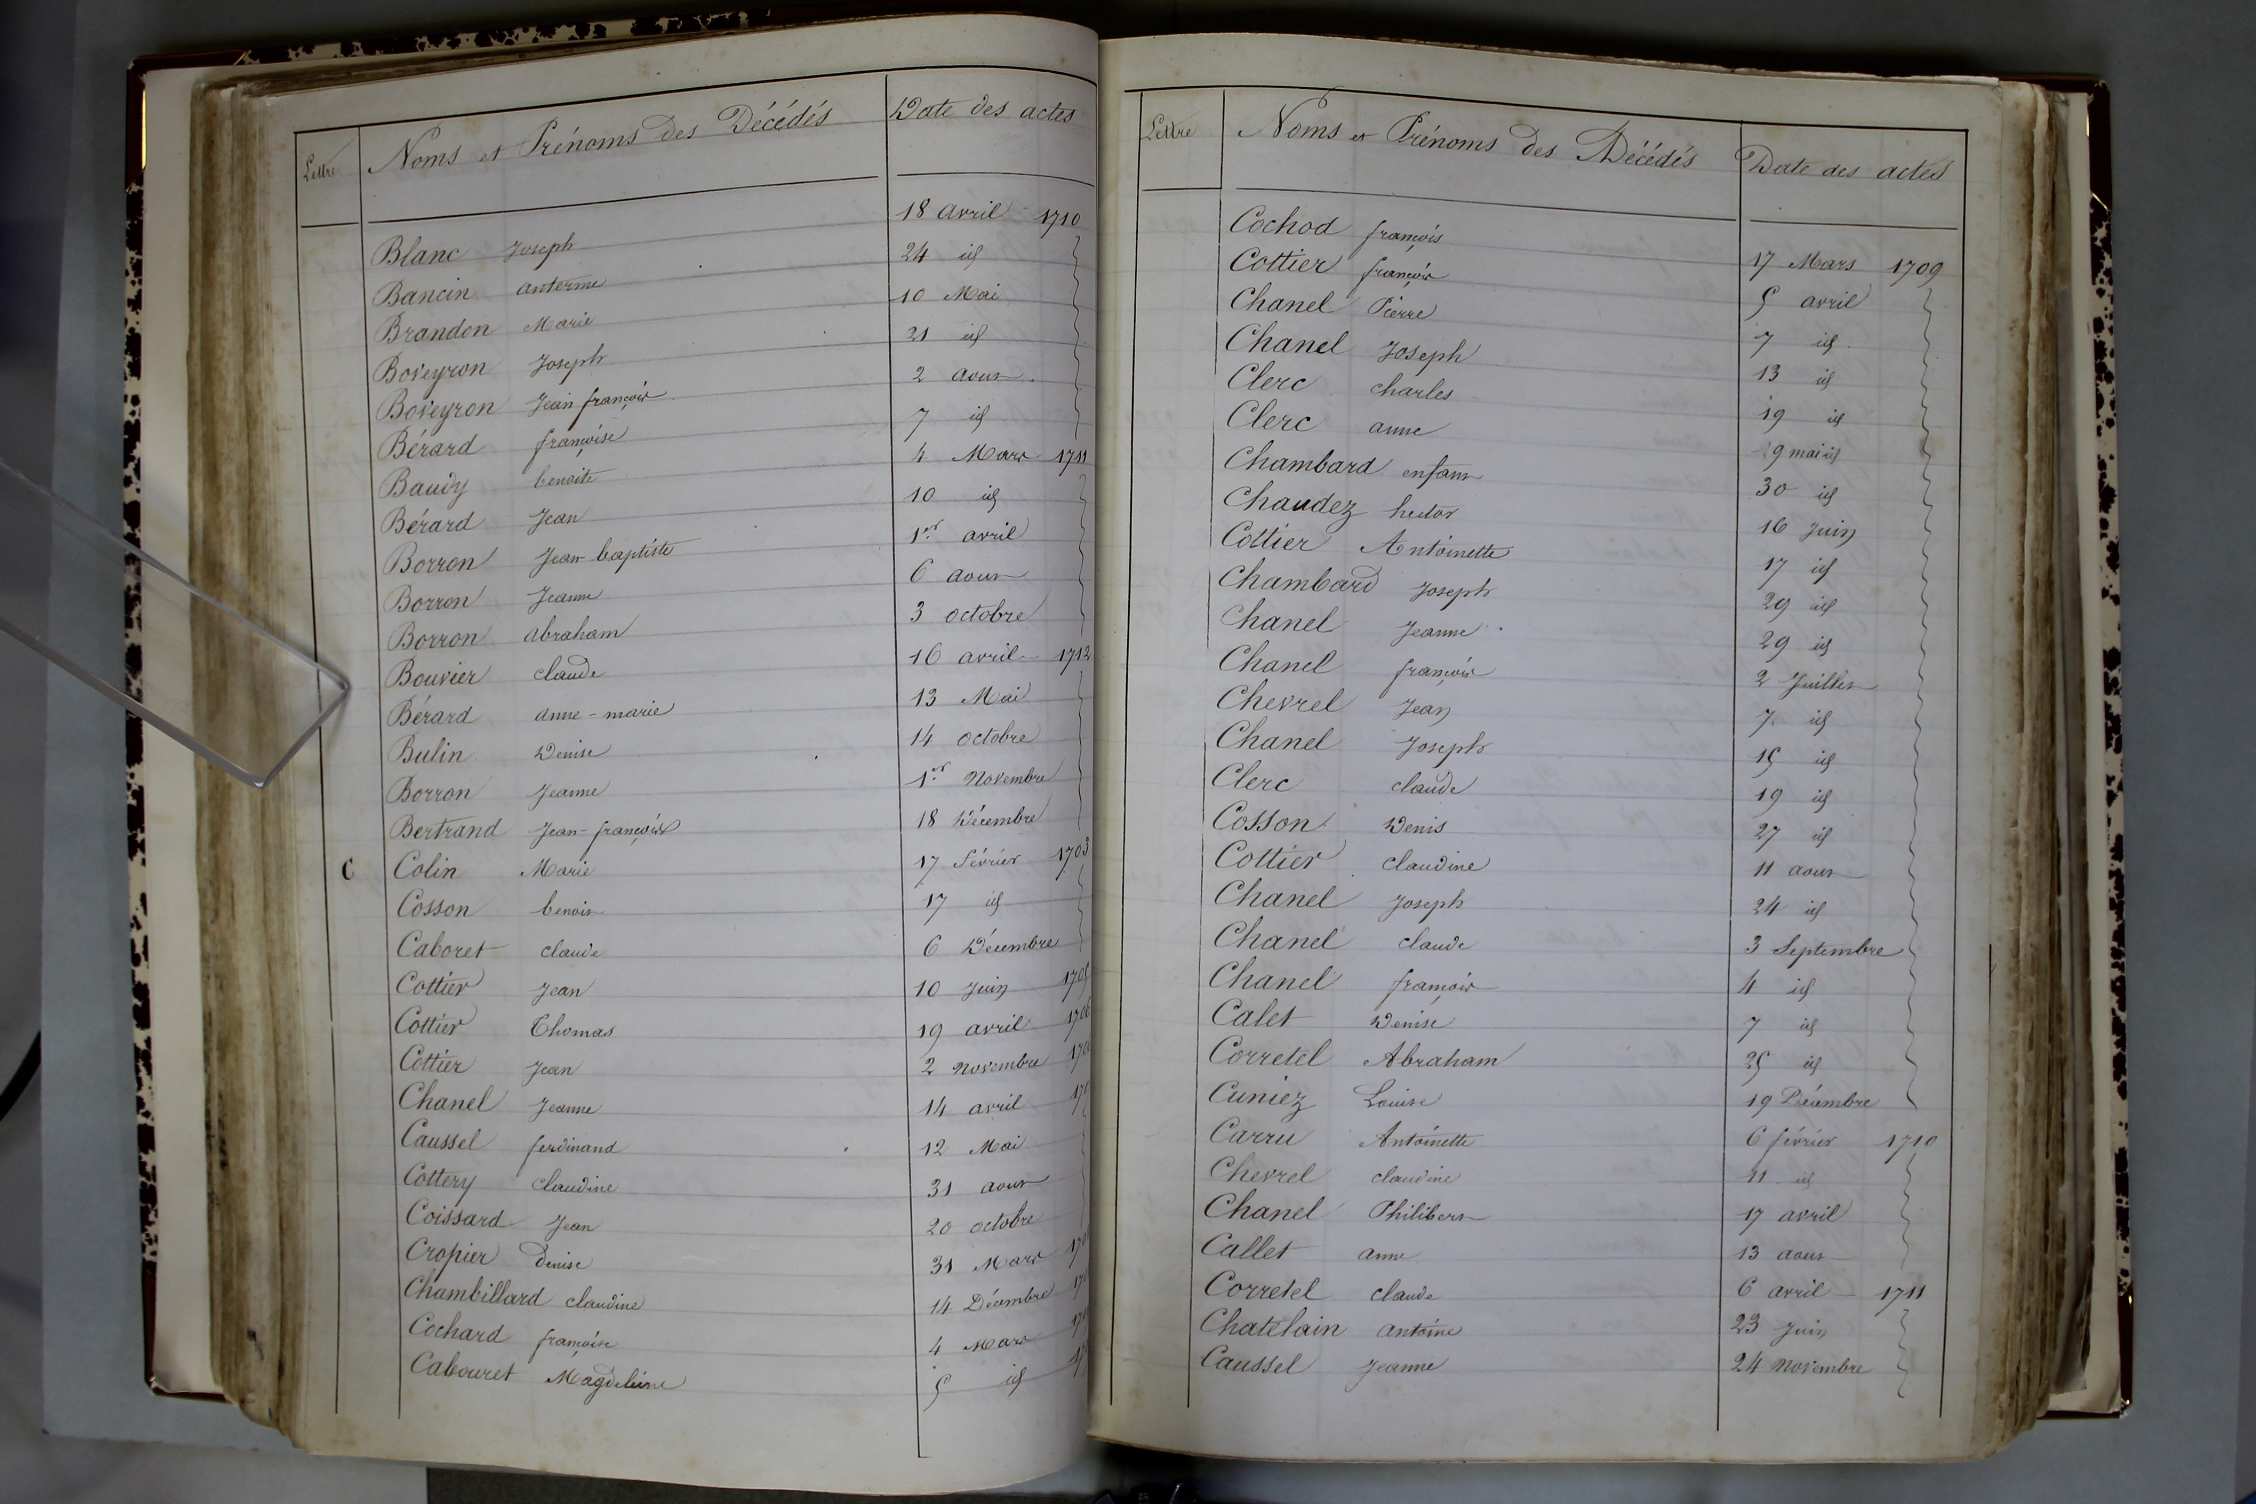 Lettre Noms et Prénoms des Décédés Date des actes
Blanc Joseph 18 avril 1710
Bancin anterme 24 id
Brandon Marie 10 Mai
Boveyron Joseph 21 id
Boveyron Jean françois 2 aout
Bérard françoise 7 id
Baudy benoite 4 Mars 1711
Bérard Jean 10 id
Borron Jean baptiste 1er avril
Borron Jeanne 6 aout
Borron abraham 3 octobre
Bouvier claude 16 avril 1712
Bérard anne-marie 13 Mai
Bulin Denise 14 octobre
Borron Jeanne 1er Novembre
Bertrand Jean-françois 18 Décembre
C Colin Marie 17 Février 1703
Cosson benoit 17 id
Caboret claude 6 Décembre
Cottier Jean 10 Juin 1705
Cottier Thomas 19 avril 1706
Cottier Jean 2 Novembre
Chanel Jeanne 14 avril
Caussel ferdinand 12 Mai
Cottery claudine 31 aout
Coissard Jean 20 octobre
Cropier Denise 31 Mars
Chambillard claudine 14 Décembre
Cochard françoise 4 Mars
Cabouret Magdeleine 5 id
Lettre Noms et Prénoms des Décédés Date des actes
Cochod françois 17 Mars 1709
Cottier françois 5 avril
Chanel Pierre 7 id
Chanel Joseph 13 id
Clerc charles 19 id
Clerc anne 29 mai id
Chambard enfant 30 id
Chaudez hector 16 Juin
Cottier Antoinette 17 id
Chambard Joseph 29 id
Chanel Jeanne 29 id
Chanel françois 2 Juillet
Chevrel Jean 7 id
Chanel Joseph 15 id
Clerc claude 19 id
Cosson Denis 27 id
Cottier claudine 11 aout
Chanel Joseph 24 id
Chanel claude 3 Septembre
Chanel françois 4 id
Calet Denise 7 id
Corretel Abraham 25 id
Cuniez Louise 19 Décembre
Carru Antoinette 6 février 1710
Chevrel claudine 11 id
Chanel Philibert 17 avril
Callet anne 13 aout
Corretel claude 6 avril 1711
Chatelain antoine 23 Juin
Caussel Jeanne 24 Novembre